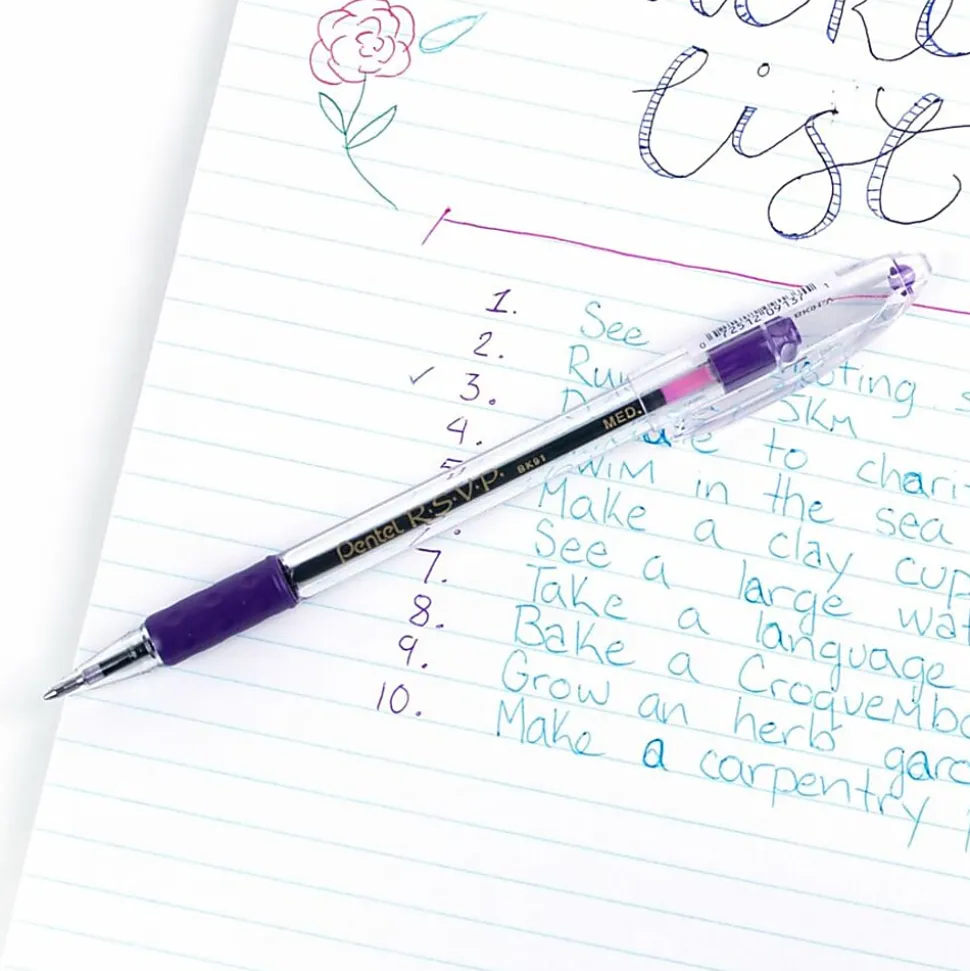 list
1. See
2. Run 5km
✓ 3. to charit
4. Swim in the sea
5. Make a clay cup
See a large wat
7. Take a language
8. Bake a Croquembo
9. Grow an herb gard
10. Make a carpentry p
Pentel R.S.V.P. BK91 MED.
0 72512 09137 1